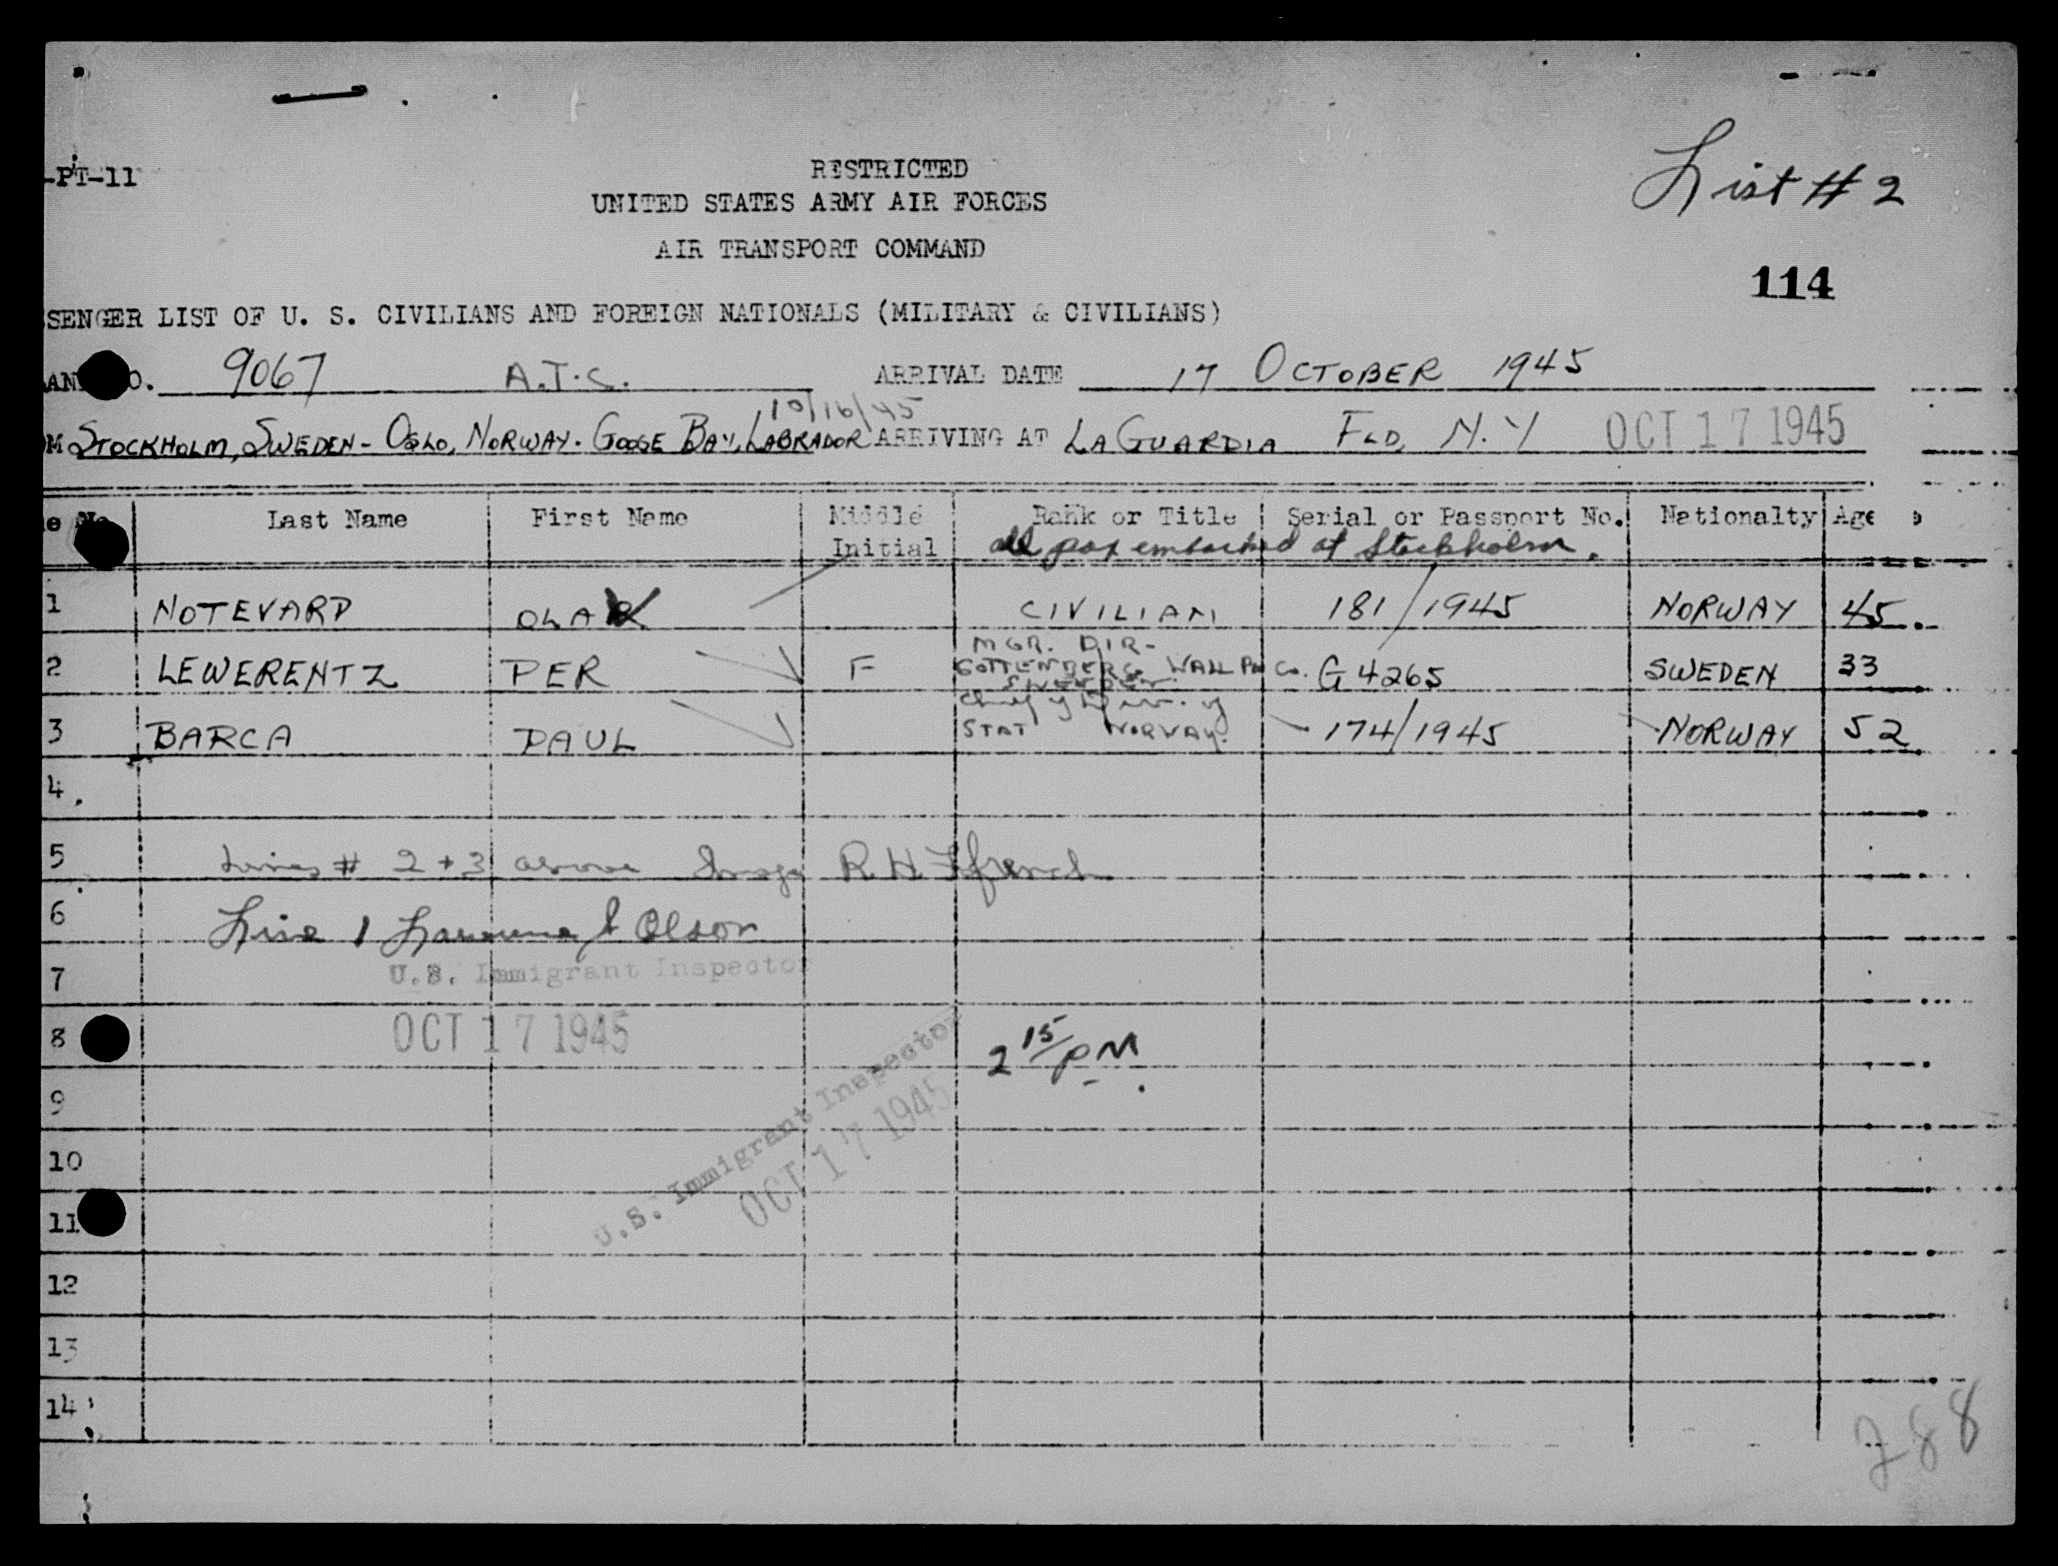 -PT-11
RESTRICTED
List # 2
UNITED STATES ARMY AIR FORCES
AIR TRANSPORT COMMAND
114
SENGER LIST OF U. S. CIVILIANS AND FOREIGN NATIONALS (MILITARY & CIVILIANS)
AN O. 9067 A.T.C. ARRIVAL DATE 17 OCTOBER 1945
10/16/45
M STOCKHOLM, SWEDEN - OSLO, NORWAY. GOOSE BAY, LABRADOR ARRIVING AT LA GUARDIA FLD, N.Y OCT 17 1945
e No Last Name First Name Middle Initial Rank or Title Serial or Passport No. Nationalty Age
all pax embarked at Stockholm.
1 NOTEVARP OLA CIVILIAN 181/1945 NORWAY 45
2 LEWERENTZ PER F MGR. DIR- GOTTENBERG WALL Co. SWEDEN G 4265 SWEDEN 33
3 BARCA PAUL Chief of Div. of STAT NORWAY. 174/1945 NORWAY 52
4
5 Lines # 2 + 3 above R H
6 Line 1 Olson
7 U.S. Immigrant Inspector
8 OCT 17 1945
2 15 PM
U.S. Immigrant Inspector
OCT 17 1945
9
10
11
12
13
14
288